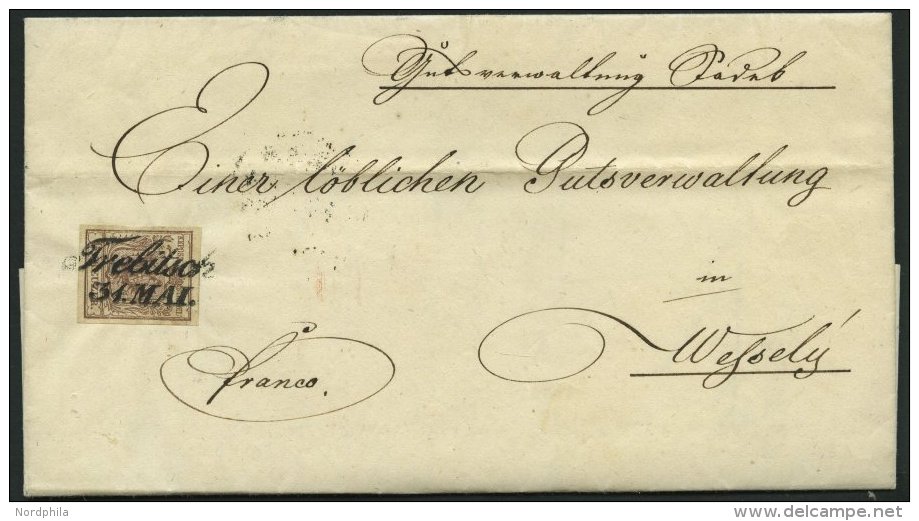 Gutsverwaltung Sádek
Einer löblichen Gutsverwaltung
Trebitsch
31. MAI.
in
Wesselý
franco.
Nordphila
delcampe.net